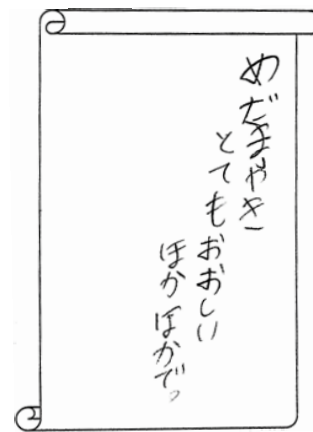 めだまやき
とてもおおしい
ほかほかで。